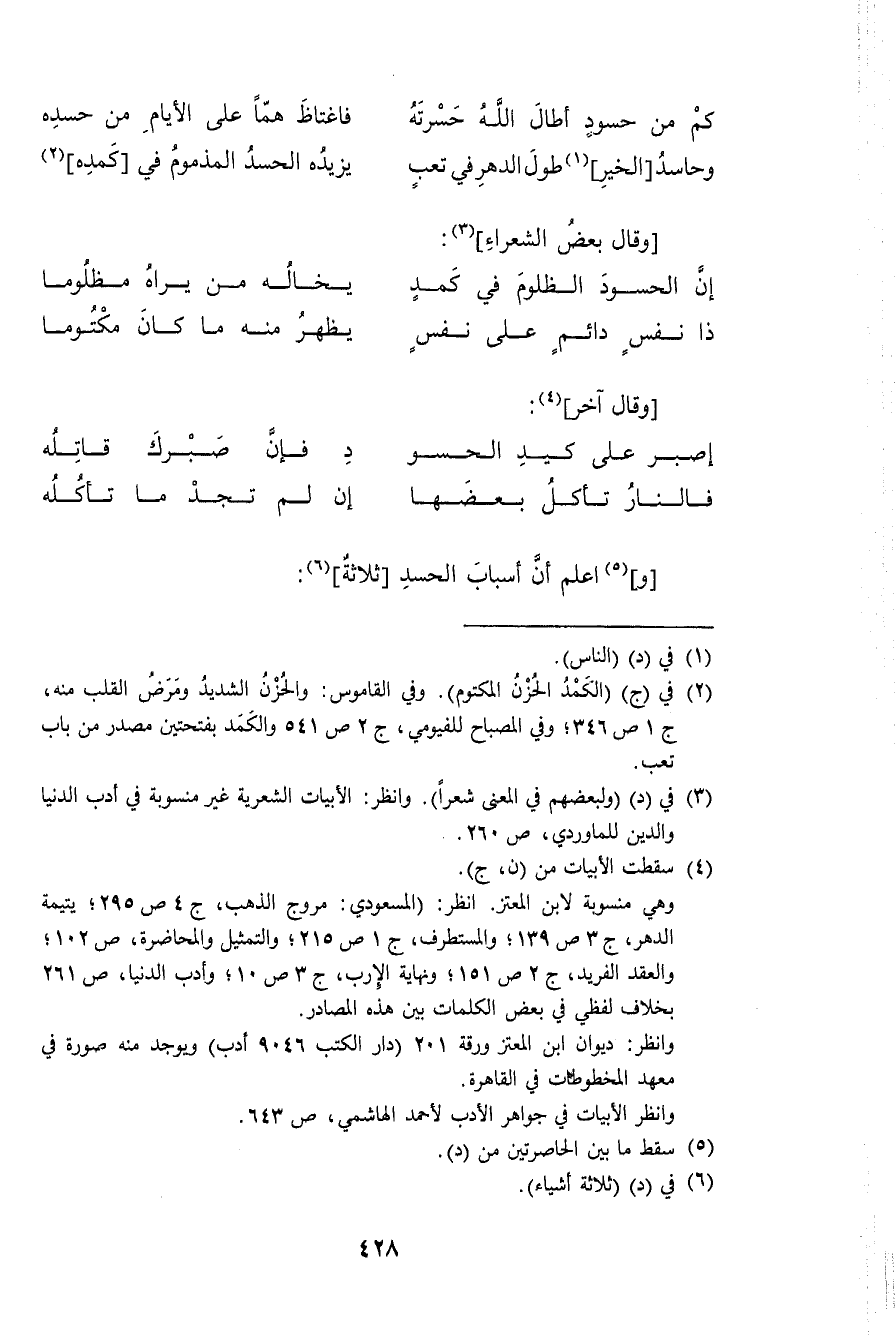 كمْ من حسودٍ أطالَ اللَّـهُ حَسْرتَهُ فاغتاظَ همّاً على الأيامِ من حسدِه
وحاسدُ [الخيرِ](١) طولَ الدهرِ في تعبٍ يزيدُه الحسدُ المذمومُ في [كَمدِه](٢)
[وقال بعضُ الشعراءِ](٣):
إنَّ الحسودَ الظلومَ في كَمدٍ يخالُه من يراهُ مظلُوما
ذا نفسٍ دائمٍ على نفسٍ يظهرُ منه ما كانَ مكْتُوما
[وقال آخر](٤):
إصبر على كيدِ الحسو دِ فإنَّ صَبْرَكَ قاتِلُه
فالنارُ تأكلُ بعضَها إن لم تجدْ ما تأكُلُه
[و](٥) اعلم أنَّ أسبابَ الحسدِ [ثلاثةٌ](٦):
(١) في (د) (الناس).
(٢) في (ج) (الكَمْدُ الحُزْنُ المكتوم). وفي القاموس: والحُزْنُ الشديدُ ومَرَضُ القلب منه،
ج ١ ص ٣٤٦؛ وفي المصباح للفيومي، ج ٢ ص ٥٤١ والكَمَد بفتحتين مصدر من باب
تعب.
(٣) في (د) (ولبعضهم في المعنى شعراً). وانظر: الأبيات الشعرية غير منسوبة في أدب الدنيا
والدين للماوردي، ص ٢٦٠.
(٤) سقطت الأبيات من (ن، ج).
وهي منسوبة لابن المعتز. انظر: (المسعودي: مروج الذهب، ج ٤ ص ٢٩٥؛ يتيمة
الدهر، ج ٣ ص ١٣٩؛ والمستطرف، ج ١ ص ٢١٥؛ والتمثيل والمحاضرة، ص ١٠٢؛
والعقد الفريد، ج ٢ ص ١٥١؛ ونهاية الإرب، ج ٣ ص ١٠؛ وأدب الدنيا، ص ٢٦١
بخلاف لفظي في بعض الكلمات بين هذه المصادر.
وانظر: ديوان ابن المعتز ورقة ٢٠١ (دار الكتب ٩٠٤٦ أدب) ويوجد منه صورة في
معهد المخطوطات في القاهرة.
وانظر الأبيات في جواهر الأدب لأحمد الهاشمي، ص ٦٤٣.
(٥) سقط ما بين الحاصرتين من (د).
(٦) في (د) (ثلاثة أشياء).
٤٢٨